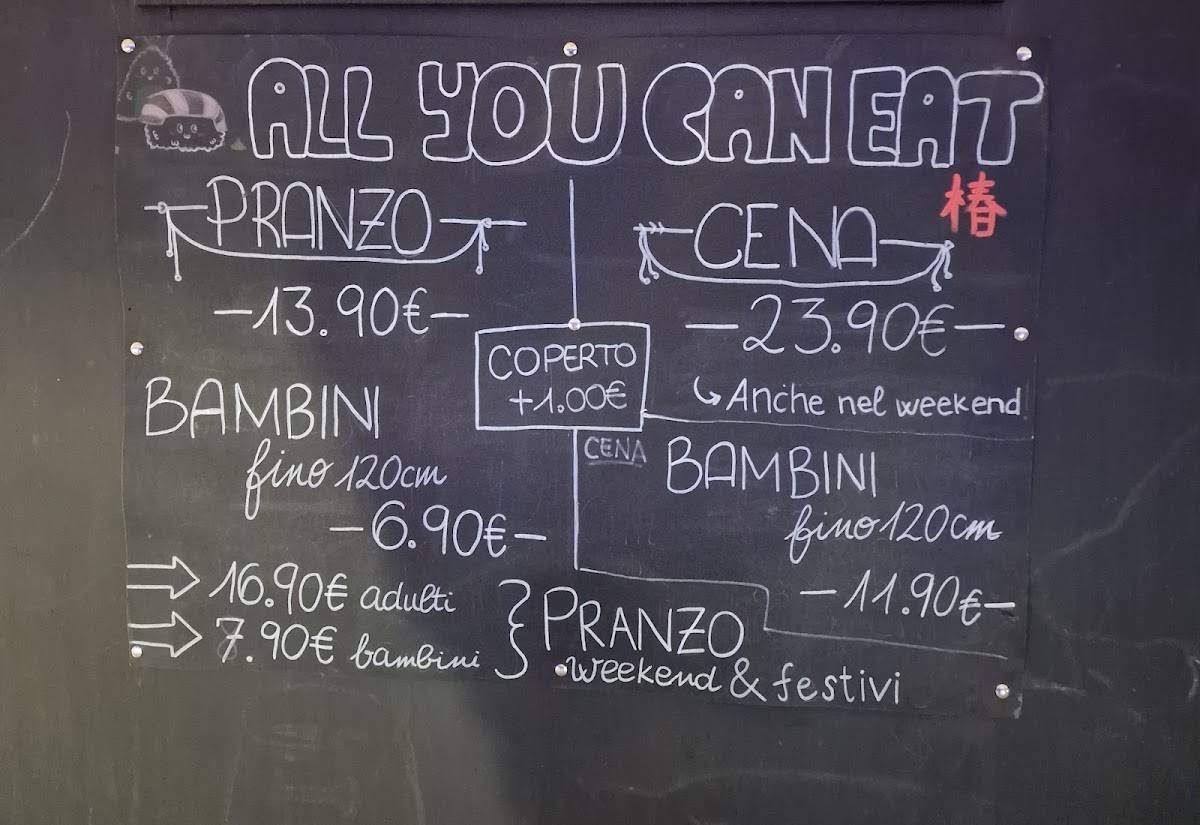 ALL YOU CAN EAT
椿
PRANZO
-13.90€-
BAMBINI
fino 120cm
-6.90€-
COPERTO
+1.00€
CENA
-23.90€-
Anche nel weekend
CENA
BAMBINI
fino 120cm
-11.90€-
16.90€ adulti
7.90€ bambini
PRANZO
weekend & festivi